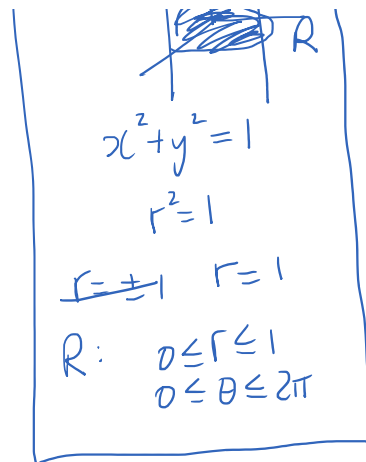 R
x² + y² = 1
r² = 1
r = ± 1 r = 1
R: 0 ≤ r ≤ 1
0 ≤ θ ≤ 2π